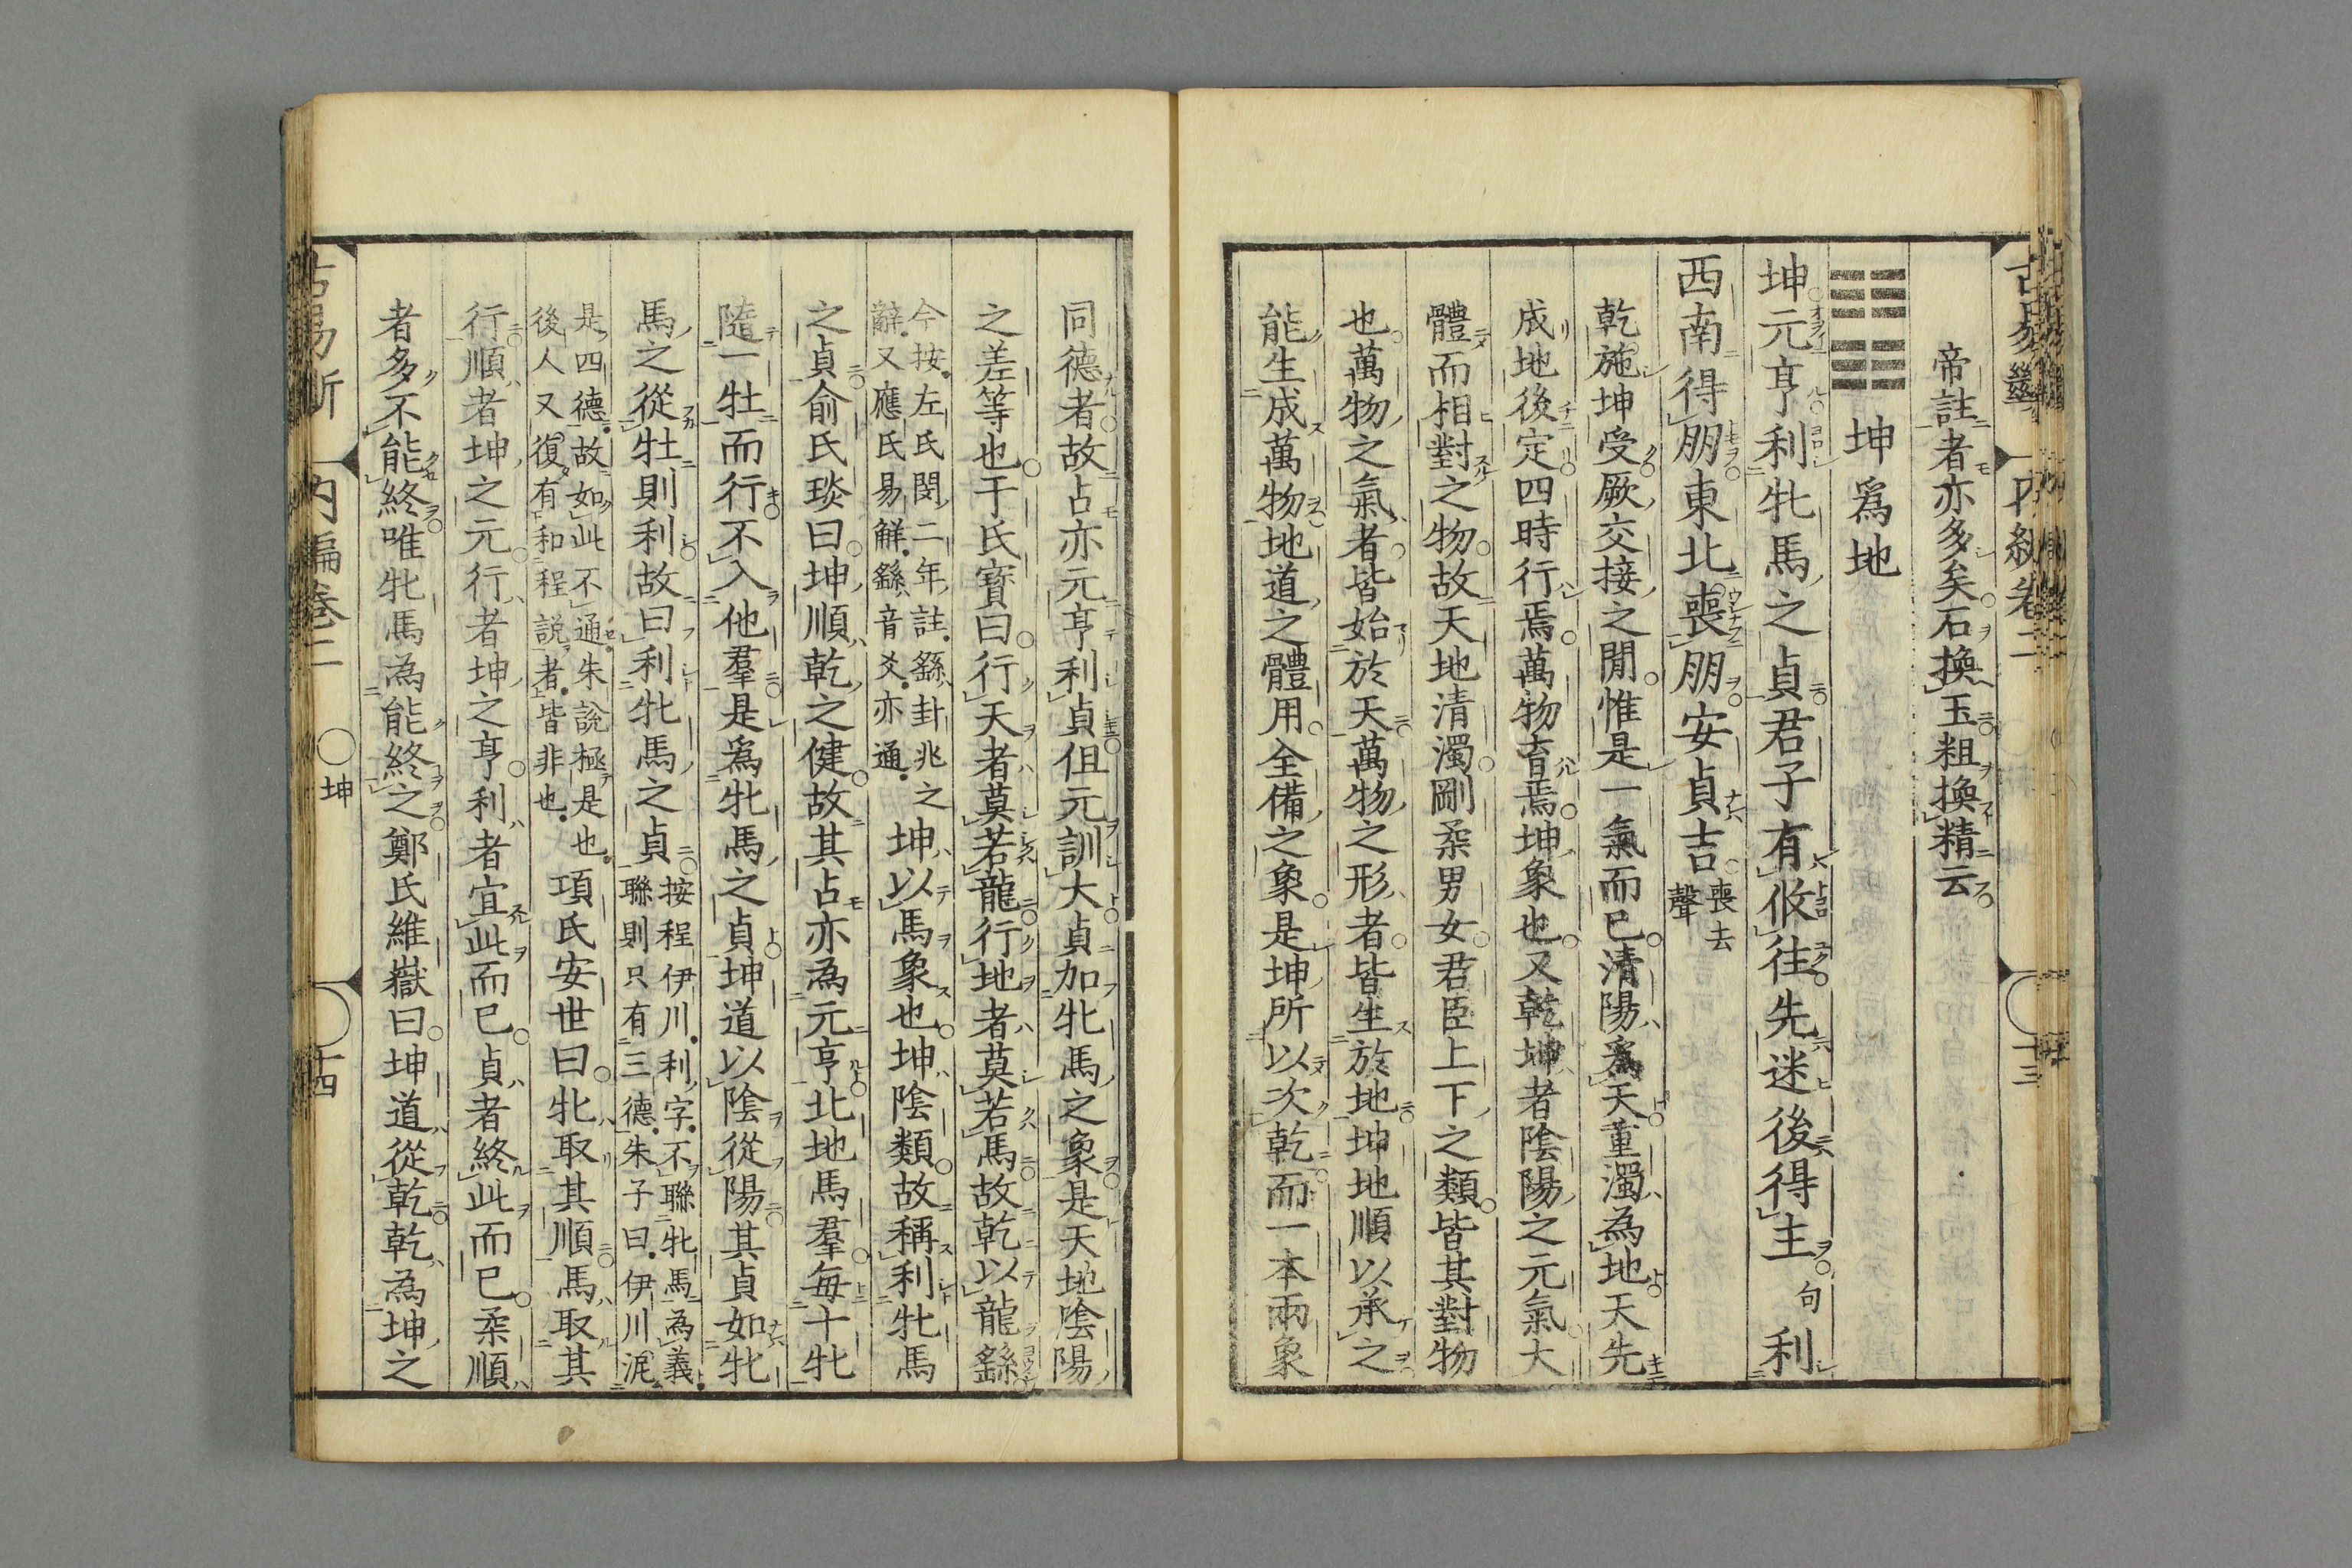 帝註者亦多矣石換玉粗換精云
坤爲地
坤元亨利牝馬之貞君子有攸往先迷後得主句利
西南得朋東北喪朋安貞吉喪去聲
乾施坤受厥交接之閒惟是一氣而已清陽爲天重濁為地天先
成地後定四時行焉萬物育焉坤象也又乾坤者陰陽之元氣大
體而相對之物故天地清濁剛柔男女君臣上下之類皆其對物
也萬物之氣者皆始於天萬物之形者皆生於地坤地順以承之
能生成萬物地道之體用全備之象是坤所以次乾而一本兩象
十三
同德者故占亦元亨利貞但元訓大貞加牝馬之象是天地陰陽
之差等也干氏寶曰行天者莫若龍行地者莫若馬故乾以龍繇
今按左氏閔二年註繇卦兆之
辭又應氏易解繇音爻亦通
坤以馬象也坤陰類故稱利牝馬
之貞俞氏琰曰坤順乾之健故其占亦為元亨北地馬羣每十牝
隨一牡而行不入他羣是爲牝馬之貞坤道以陰從陽其貞如牝
馬之從牡則利故曰利牝馬之貞
按程伊川利字不聯牝馬為義
聯則只有三德朱子曰伊川泥
是四德故如此不通朱說極是也
後人又復有和程說者皆非也
項氏安世曰牝取其順馬取其
行順者坤之元行者坤之亨利者宜此而已貞者終此而已柔順
者多不能終唯牝馬為能終之鄭氏維嶽曰坤道從乾乾為坤之
古易斷 内編卷二 坤 十四